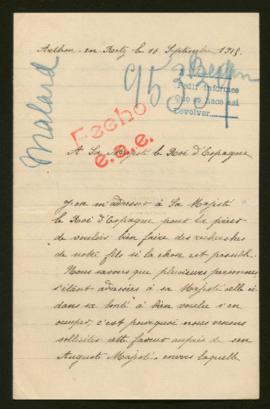 Arthon-en-Retz le 11 Septembre 1915.
Malard
953
Berlin
Pedir informes
Que se hace así
Devolver
Fecho
e.s.e.
A Sa Majesté le Roi d'Espagne
J'ose m'adresser à Sa Majesté
le Roi d'Espagne pour le prier
de vouloir bien faire des recherches
de notre fils si la chose est possible.
Nous savons que plusieurs personnes
s'étant adressées à sa Majesté elle
dans sa bonté a bien voulu s'en
occuper, c'est pourquoi nous venons
solliciter cette faveur auprès de son
Auguste Majesté, envers laquelle